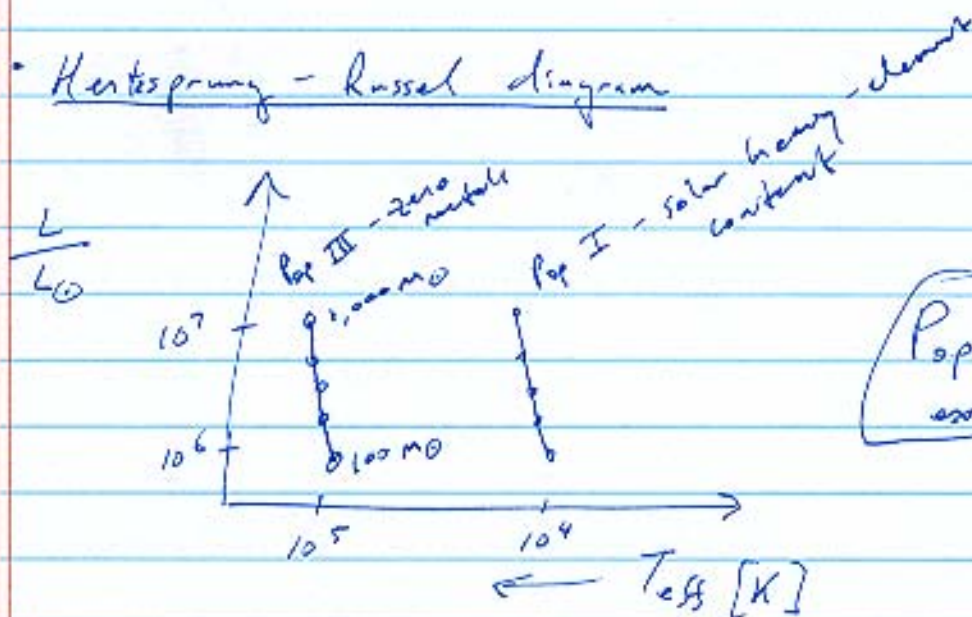 • Hertzsprung - Russel diagram
L
L⊙
Pop III - zero
metals
Pop I - solar heavy - element
content
1,000 M⊙
10⁷
Pop
10⁶
100 M⊙
10⁵
10⁴
← Teff [K]